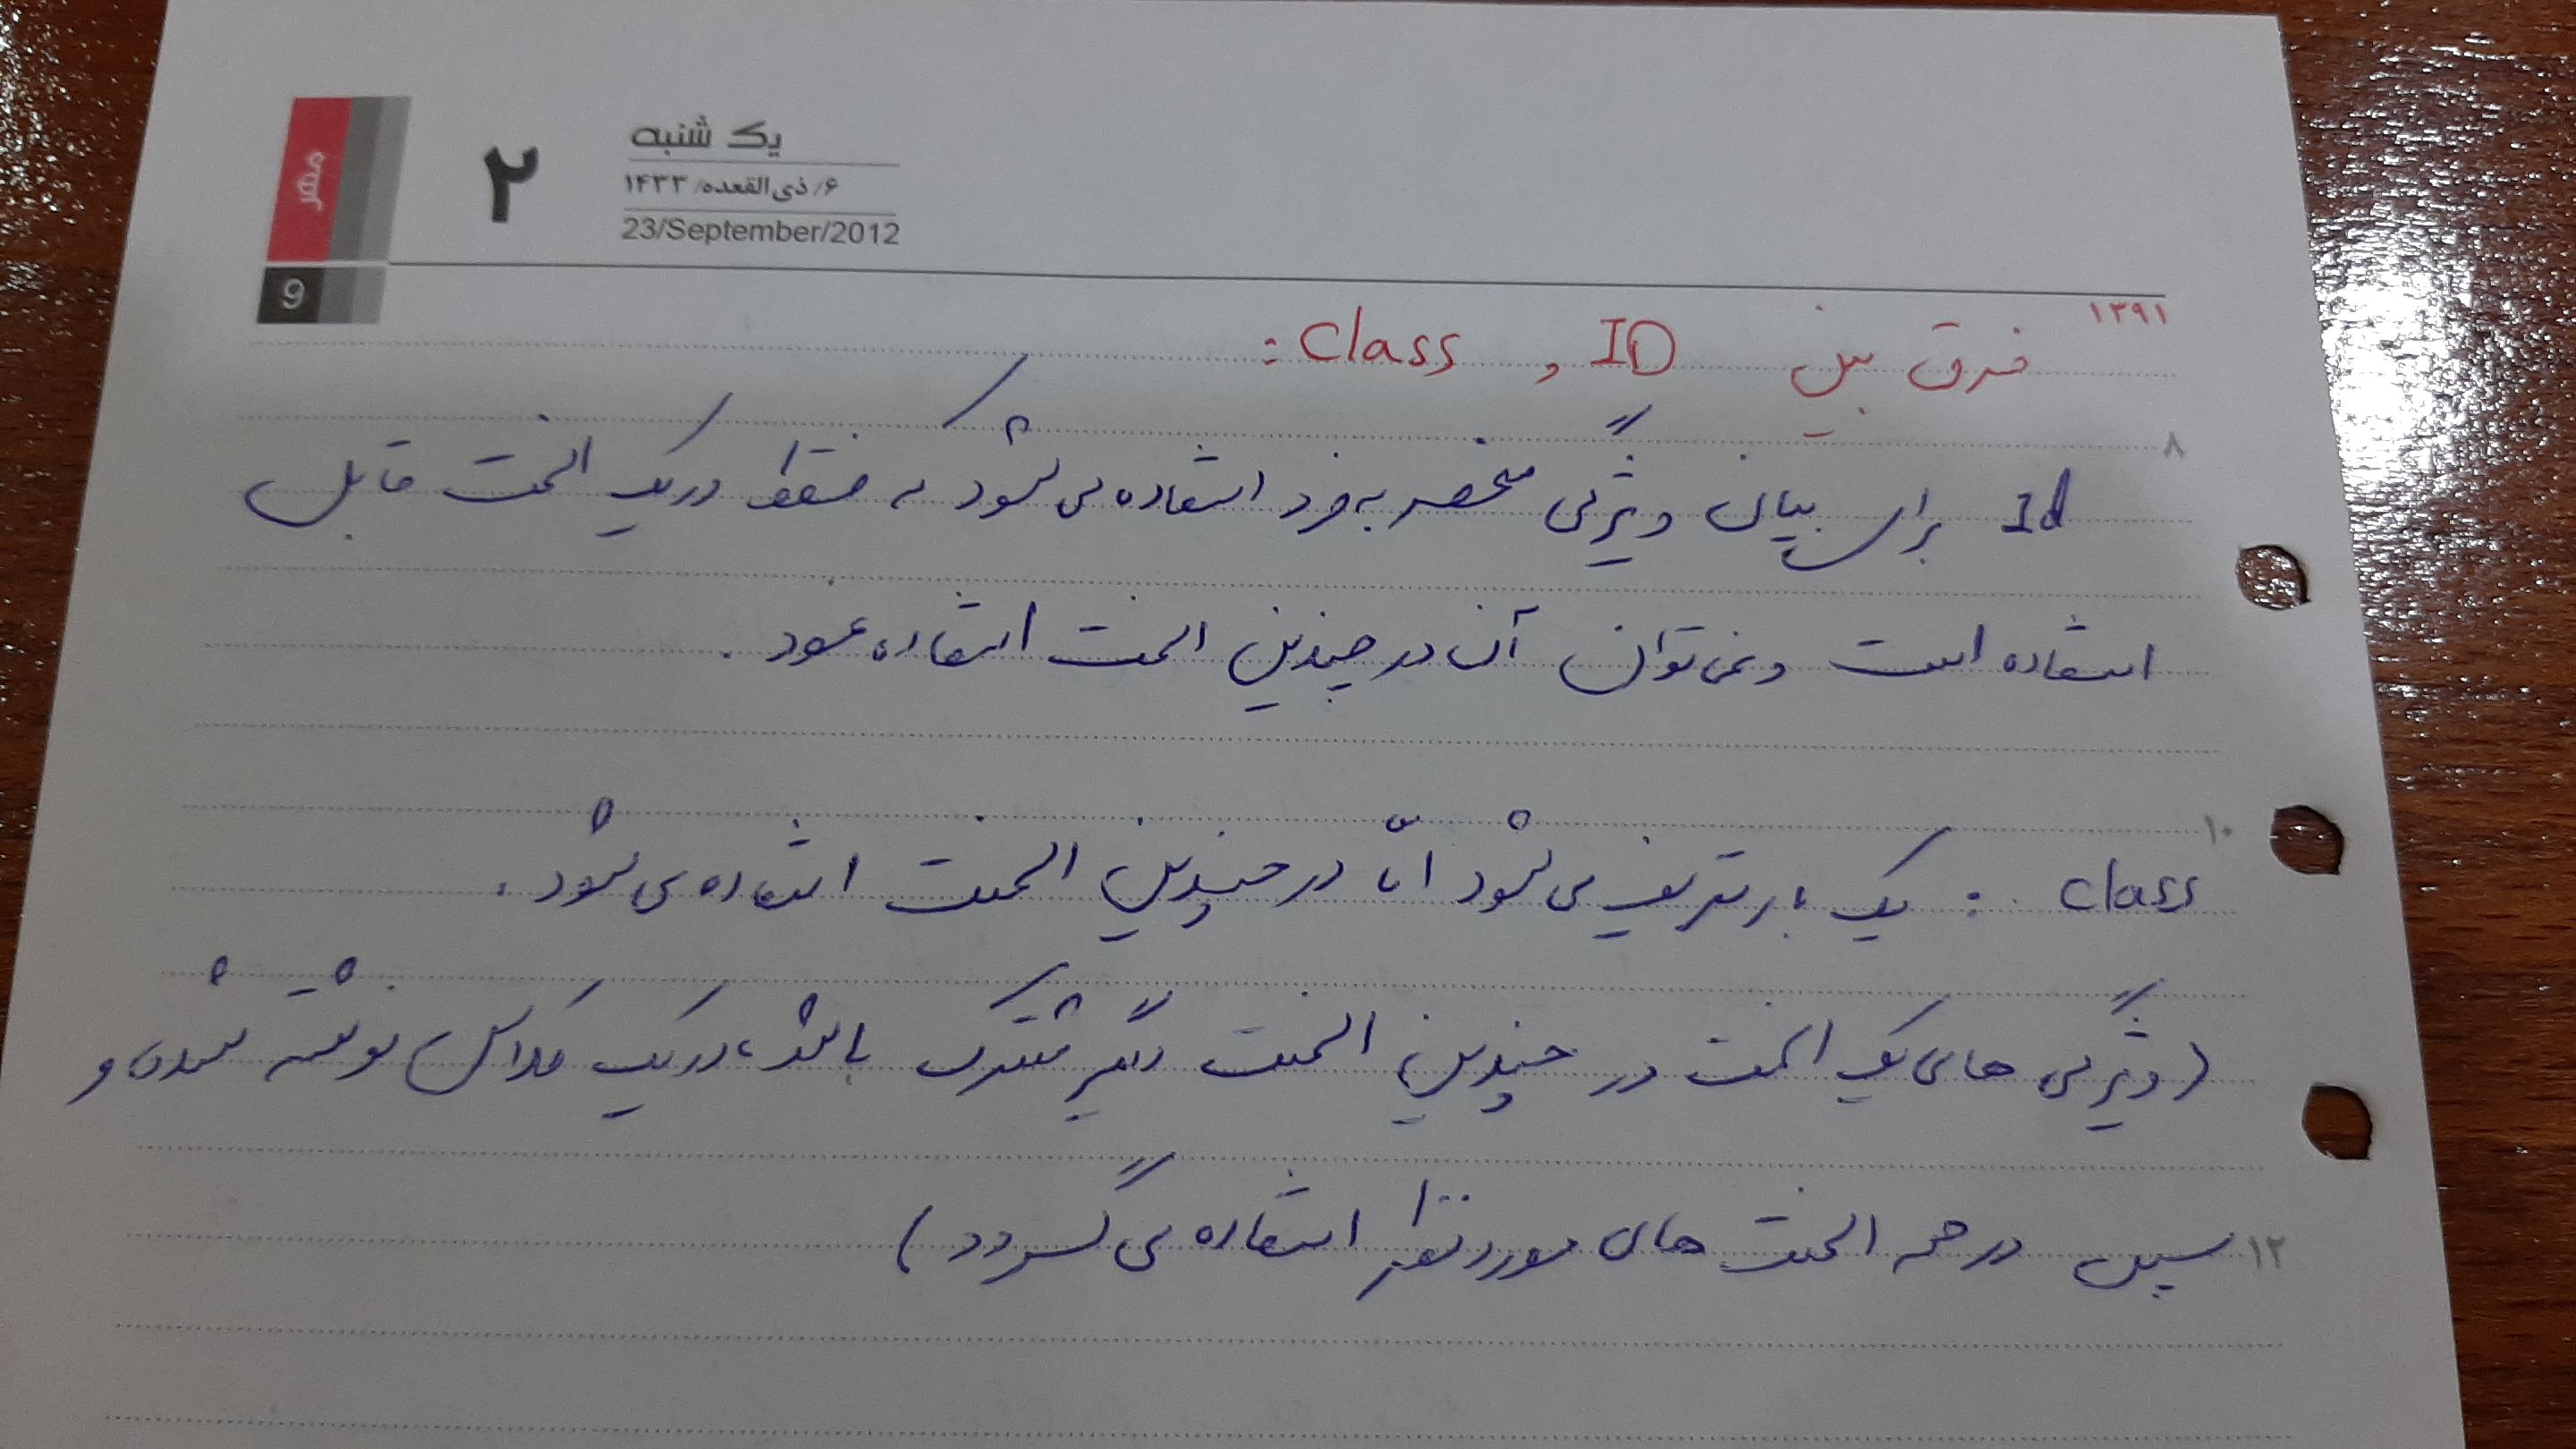 یک شنبه
مهر
۲
۶/ ذی القعده/ ۱۴۳۳
23/September/2012
9
۱۳۹۱
فرق بین ID و Class :
۸
Id برای بیان ویژگی منحصر به فرد استفاده می شود که فقط در یک المنت قابل
استفاده است و نمی توان آن در چندین المنت استفاده نمود .
۱۰
Class : یک بار تعریف می شود امّا در چندین المنت استفاده می شود .
(ویژگی های یک المنت در چندین المنت دیگر مشترک باشد ، در یک کلاس نوشته شده و
۱۲ سپس در همه المنت های مورد نظر استفاده می گردد )